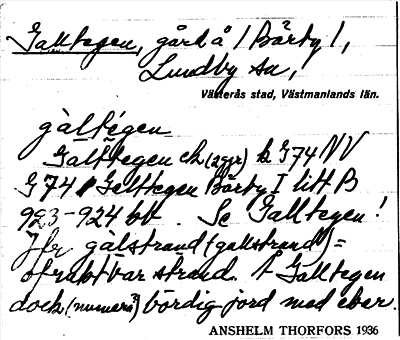 Galltegen, gård å /Bärby/,
Lundby sn,
Västerås stad, Västmanlands län.
gàltégen
Gälltegen ek (2 ggr) k G74 NV
G74 Gelltegen Bärby I litt B
923-924 bb. Se Galltegen!
Jfr gàlstrand (gallstrand) =
ofruktbar strand. Å Galltegen
dock (numera?) bördig jord med ekar.
ANSHELM THORFORS 1936